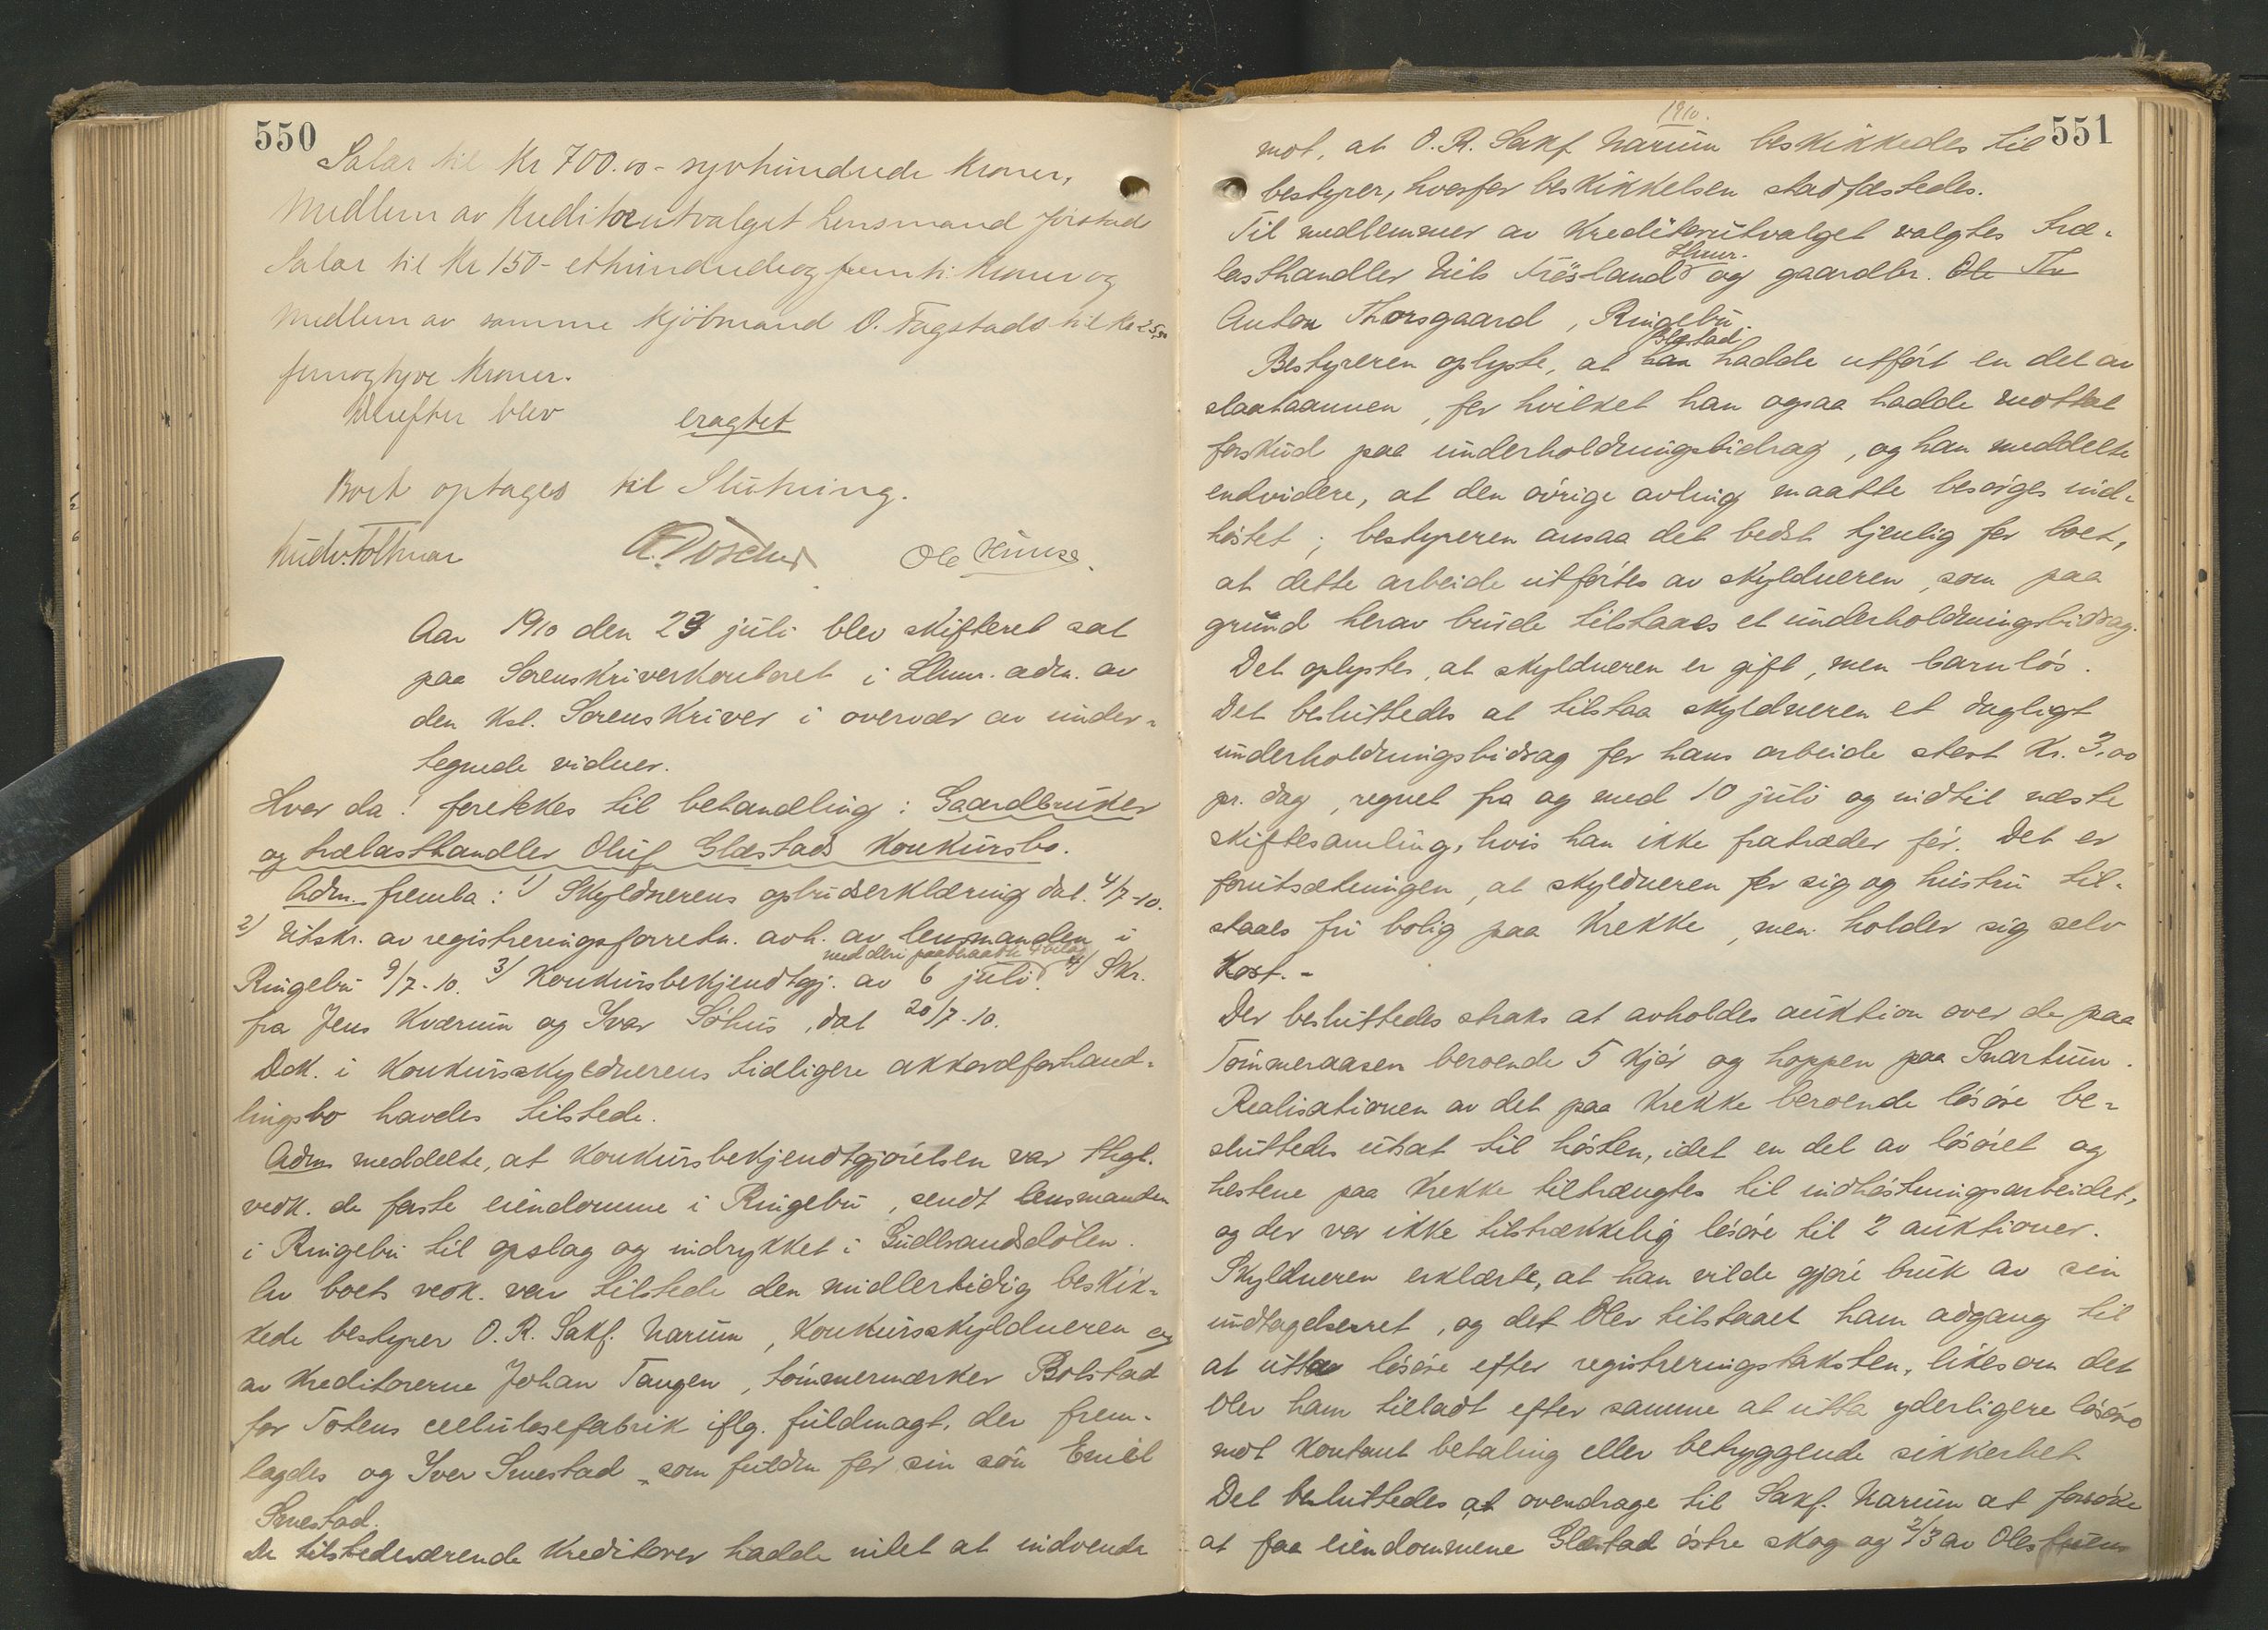 550
Salær til Kr 700.00 - syvhundrede Kroner,
Medlem av Kreditorutvalget Lensmand
Salær til Kr 150 - ethundredeogfemti Kroner og
Medlem av samme Kjøbmand O. Fagstads til Kr 25,00
femogtyve Kroner.
Derefter blev eragtet
Boet optages til Slutning.
Ole
Aar 1910 den 23 juli blev skifteret sat
paa Sorenskriverkontoret i Lhmr. adm. av
den Kst. Sorenskriver i overvær av under-
tegnede vidner.
Hvor da! foretokes til behandling: Gaardbruker
og trælasthandler Oluf Glæstads Konkursbo.
Adm. fremla: 1) Skyldnerens opbudserklæring dat. 4/7-10.
2) Utskr. av registreringsforretn. avh. av lensmanden i
med den paabudte
Ringebu 9/7-10. 3) Konkursbekjendtgj. av 6 juli. 4) Skr.
fra Jens Kværum og Ivar Söhus, dat 20/7-10.
Dok. i Konkursskyldnerens tidligere akkordforhand-
lingsbo havdes tilstede.
Adm meddelte, at Konkursbekjendtgjörelsen var thgl.
vedk. de faste eiendomme i Ringebu, sendt lensmanden
i Ringebu til opslag og indrykket i Gudbrandsdölen.
Av boets vedk. var tilstede den midlertidig beskik-
kede bestyrer O.R. Sakf. Narum, Konkursskyldneren og
av Kreditorerne Johan Tangen, tömmermærker Bolstad
for Totens cellulosefabrik iflg. fuldmagt, der frem-
lagdes og Iver Smestad som fuldm for sin sön Emil
Smestad.
De tilstedeværende Kreditorer hadde intet at indvende
1910.
551
mot, at O.R. Sakf Narum beskikkedes til
bestyrer, hvorfor beskikkelsen stadfæstedes.
Til medlemmer av Kreditorutvalget valgtes træ-
Lhmr.
lasthandler Nils Fröisland og gaardbr. Ole Th
Anton Thorsgaard, Ringebu.
Glæstad
Bestyreren oplyste, at han hadde utfört en del av
slaataannen, for hvilket han ogsaa hadde mottat
forskud paa underholdningsbidrag, og han meddelte
endvidere, at den övrige avling maatte besörges ind-
höstet; bestyreren ansaa det bedst tjenlig for boet,
at dette arbeide utförtes av skyldneren, som paa
grund herav burde tilstaaes et underholdningsbidrag.
Det oplystes, at skyldneren er gift, men barnlös.
Det besluttedes at tilstaa skyldneren et dagligt
underholdningsbidrag for hans arbeide stort Kr. 3,00
pr. dag, regnet fra og med 10 juli og indtil næste
skiftesamling, hvis han ikke fratræder för. Det er
forutsætningen, at skyldneren for sig og hustru til-
staaes fri bolig paa Krekke, men holder sig selv
Kost. -
Der besluttedes straks at avholdes auktion over de paa
Tömmeraasen beroende 5 kjör og hoppen paa Snartum.
Realisationen av det paa Krekke beroende lösöre be-
sluttedes utsat til hösten, idet en del av lösöret og
hestene paa Krekke tiltrængtes til indhöstningsarbeidet,
og der var ikke tilstrækkelig lösöre til 2 auktioner.
Skyldneren erklærte, at han vilde gjöre bruk av sin
undtagelsesret, og det blev tilstaaet ham adgang til
at utta lösöre efter registreringstaksten, likesom det
blev ham tilladt efter samme at utta yderligere lösöre
mot kontant betaling eller betryggende sikkerhet
Det besluttedes at overdrage til Sakf. Narum at forsöke
at faa eiendommene Glæstad östre skog og 2/3 av